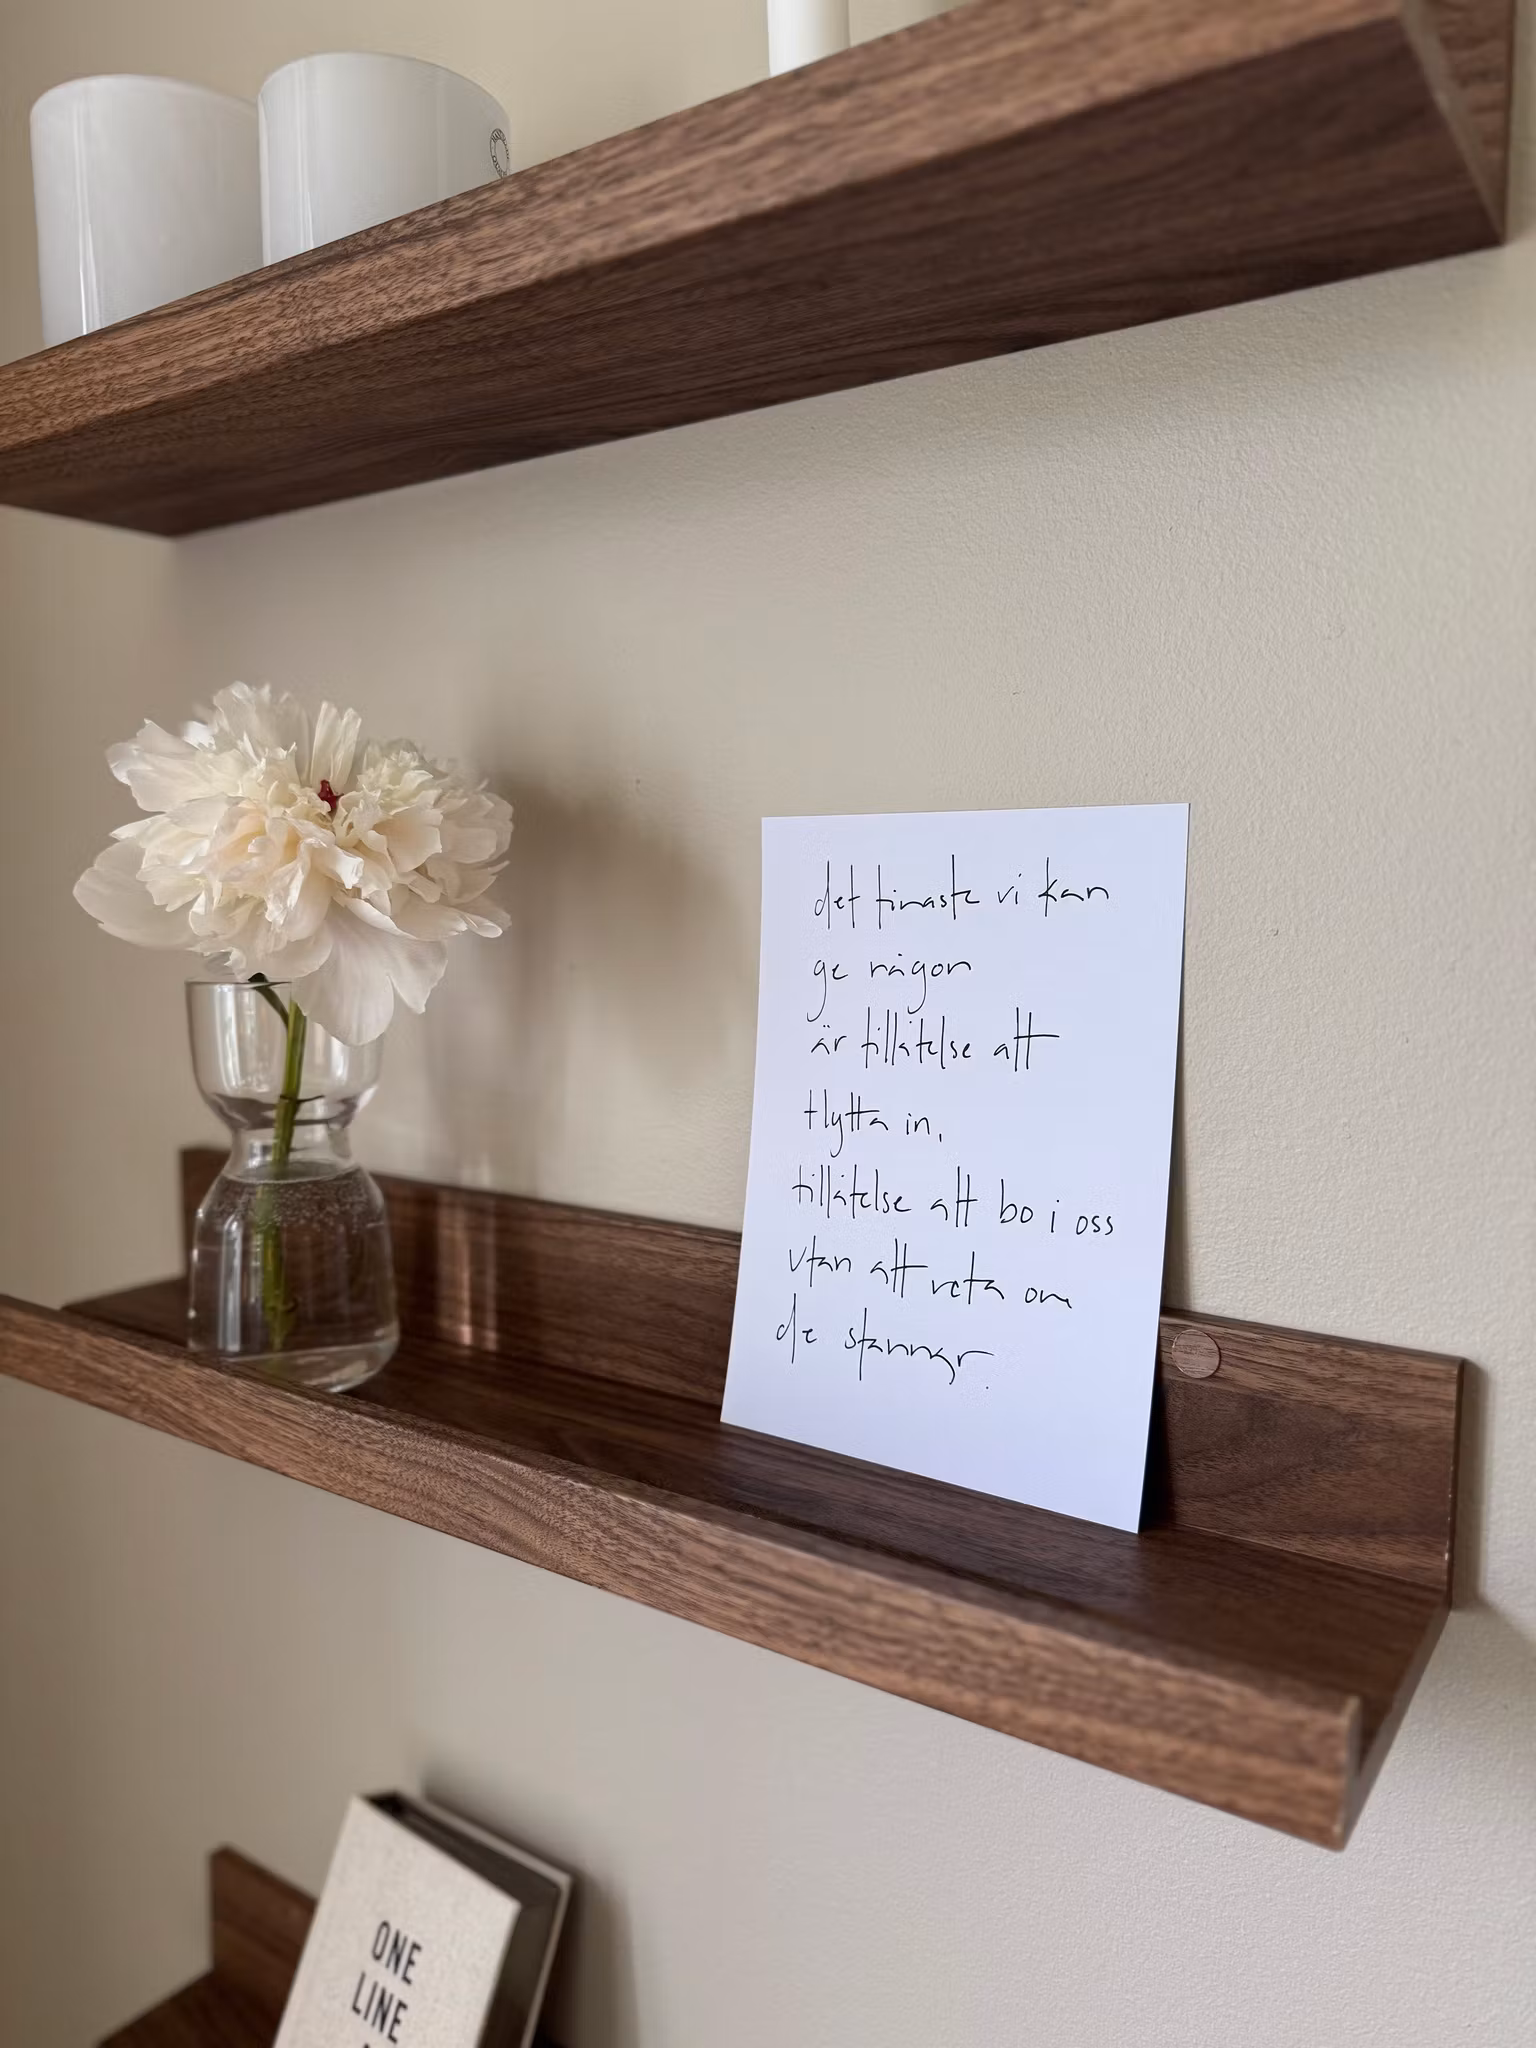 det finaste vi kan
ge någon
är tillåtelse att
flytta in,
tillåtelse att bo i oss
utan att veta om
de stannar.
ONE
LINE